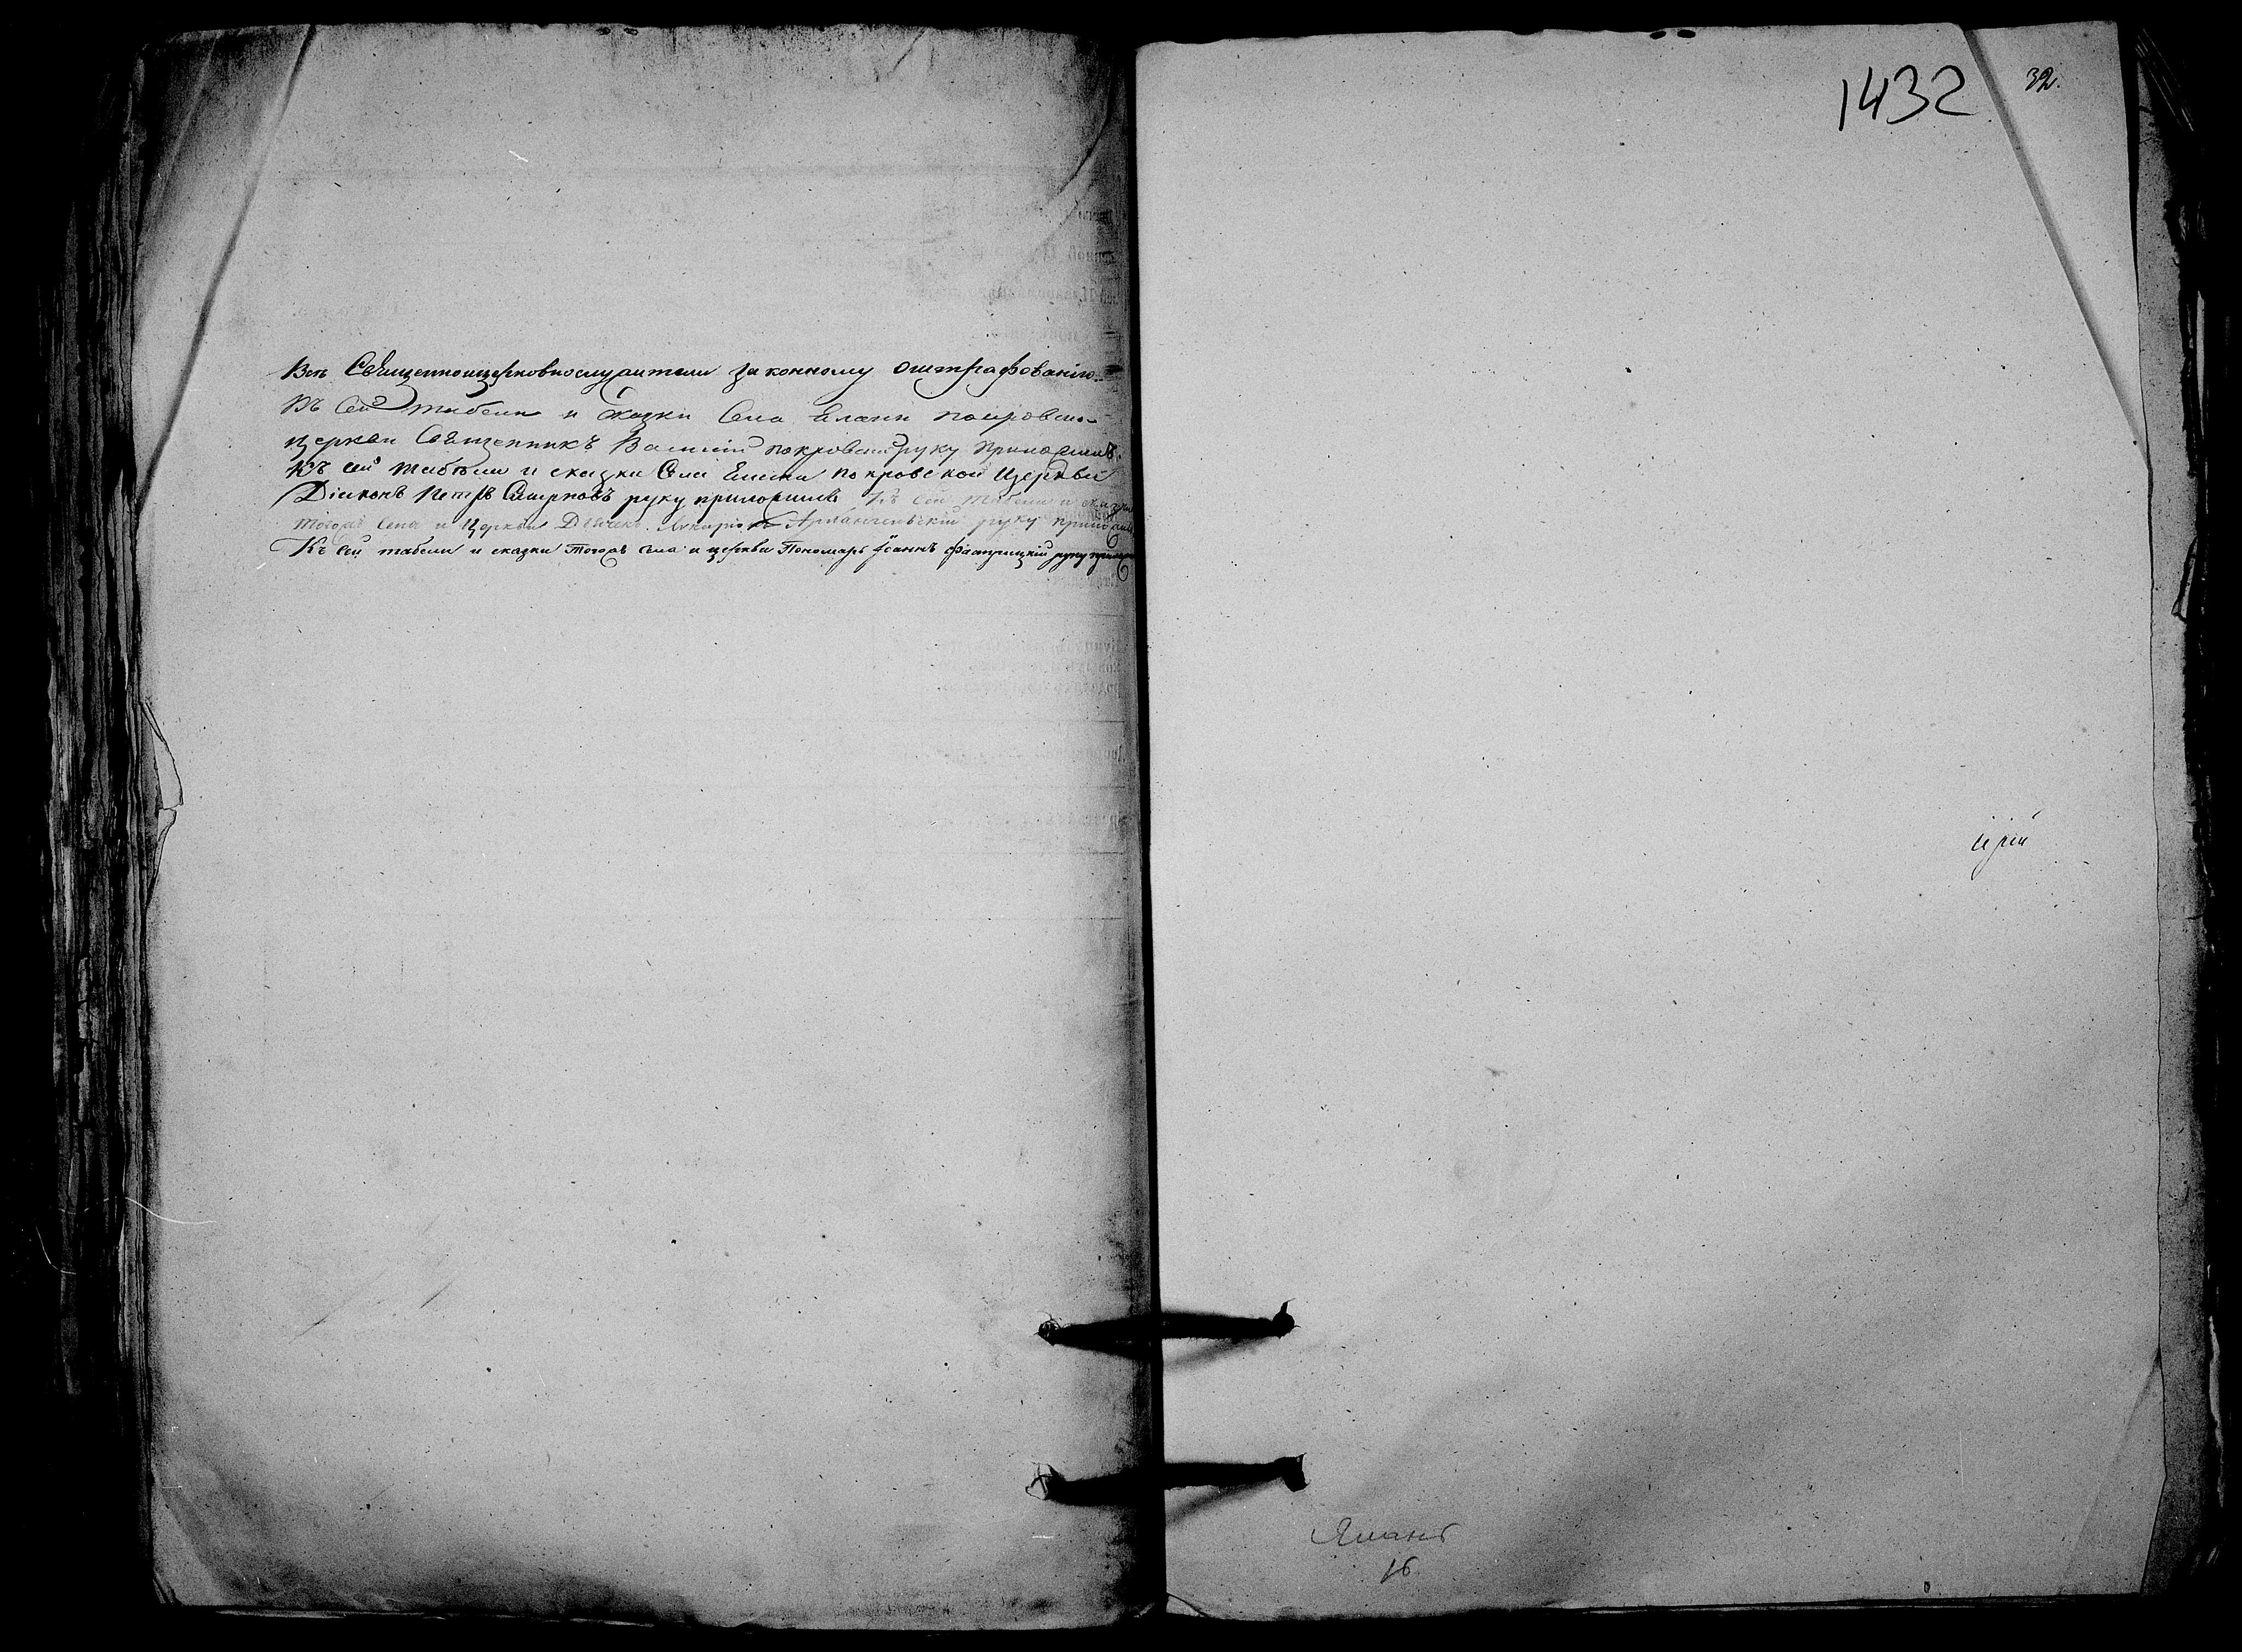 Всѣ Священноицерковнослужители законному оштрафованію
Къ сей табели и сказки Села Елани покровско
церкви Священникъ Василій покровскій руку приложилъ.
Къ сей табели и сказки Села Елани покровской Церкви
Діаконъ Петръ Смирновъ руку приложилъ Къ сей табели и сказки
тогожъ села и Церкви Дьячекъ Архангельскій руку прило
Къ сей табели и сказки тогожъ села и церкви Пономарь Іоаннъ руку прилож
1432
32.
16